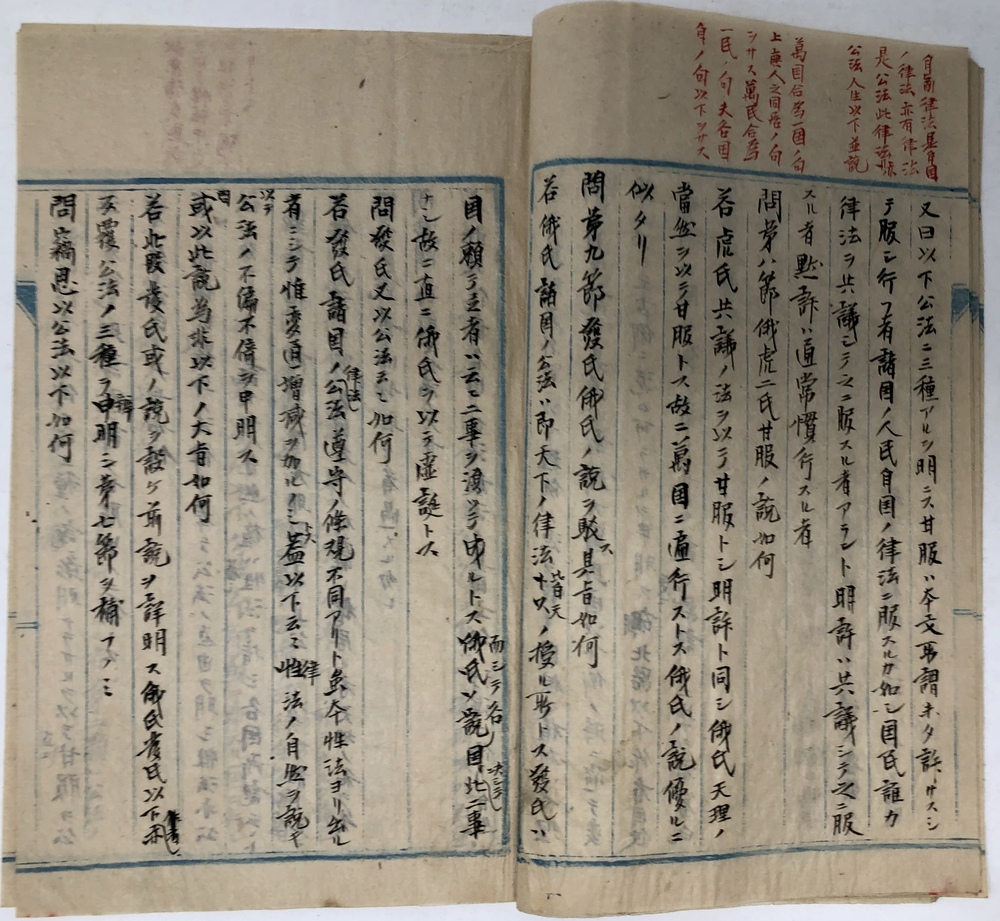 自制律法是自国
ノ律法亦有律法
是公法此律法
公法人生以下並説
萬国合為一国ノ句
上 庶人之同居ノ句
シサス萬民合為
一民ノ句夫各国
自ノ句以下ヲサス
又曰以下公法ニ三種アルヲ明ニス甘服ハ本文所謂未タ許サスシ
テ服シ行フ者諸国ノ人民自国ノ律法ニ服スルカ如シ国民誰カ
律法ヲ共議シテ之ニ服スル者アラント明許ハ共議シテ之ニ服
スル者黙許ハ通常慣行スル者
問第八節俄虎二氏甘服ノ説如何
答虎氏共議ノ法ヲ以テ甘服トシ明許ト同シ俄氏天理ノ
當然ヲ以テ甘服トス故ニ萬国ニ遍行ストス俄氏ノ説優ルニ
似タリ
問第九節發氏俄氏ノ説ヲ駁ス其旨如何
答俄氏諸国ノ公法ハ即天下ノ律法ナリ皆天ノ授ル所トス發氏ハ
国ノ願テ立者ハ云々二事ヲ湊シテ成ルトス而シテ名 俄氏ハ説国此二事
ナシ故ニ直ニ俄氏ヲ以テ虚誕トス
問發氏又以公法云々如何
答發氏諸国ノ公法律法遵守ノ條規不同アリト虽本性法ヨリ出ル
有ニシテ惟変通増減ヲ加ルノミトス蓋以下云々性律法ノ自然ヲ説キ
以テ公法ノ不偏不倚ヲ申明ス
問或以此説為非以下ノ大旨如何
答此段發氏或ノ説ヲ設ケ前説ヲ詳明ス俄氏發氏以下
又覆公法ノ三種ヲ申辨明シ第七節ヲ補フノミ
問 竊思以公法以下如何